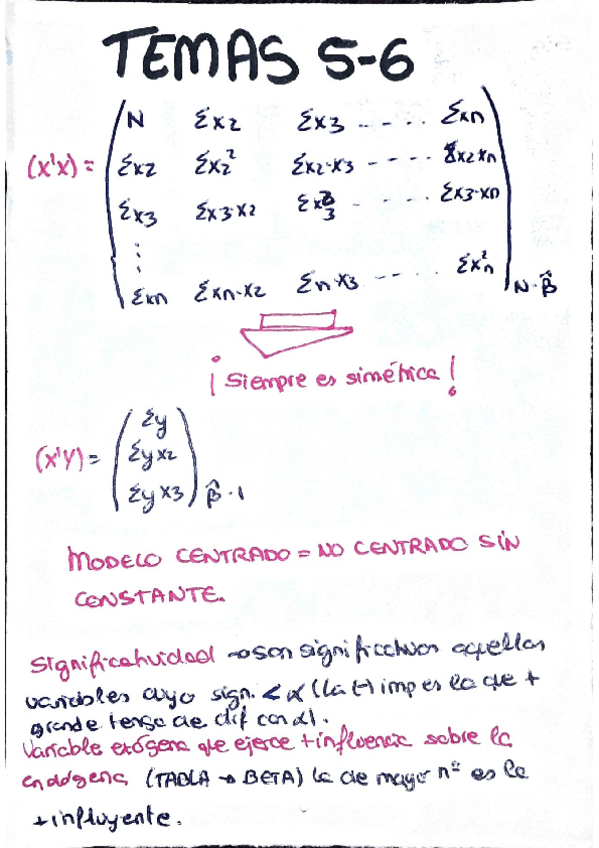 TEMAS 5-6
N Σx2 Σx3 ----- Σxn
(x'x) = Σx2 Σx2² Σx2·x3 ---- Σx2xn
Σx3 Σx3·x2 Σx3² ----- Σx3·xn
⋮
Σxn Σxn·x2 Σn·x3 ---- Σxn² N·β̂
¡Siempre es simétrica!
Σy
(x'y) = Σyx2
Σyx3 β̂·1
MODELO CENTRADO = NO CENTRADO SIN
CONSTANTE.
Significatividad → son significativas aquellas
variables cuyo sign. < α (la (-) imp es la que +
grande tenga de dif con α).
Variable exógena que ejerce + influencia sobre la
endógena (TABLA → BETA) la de mayor nº es la
+ influyente.